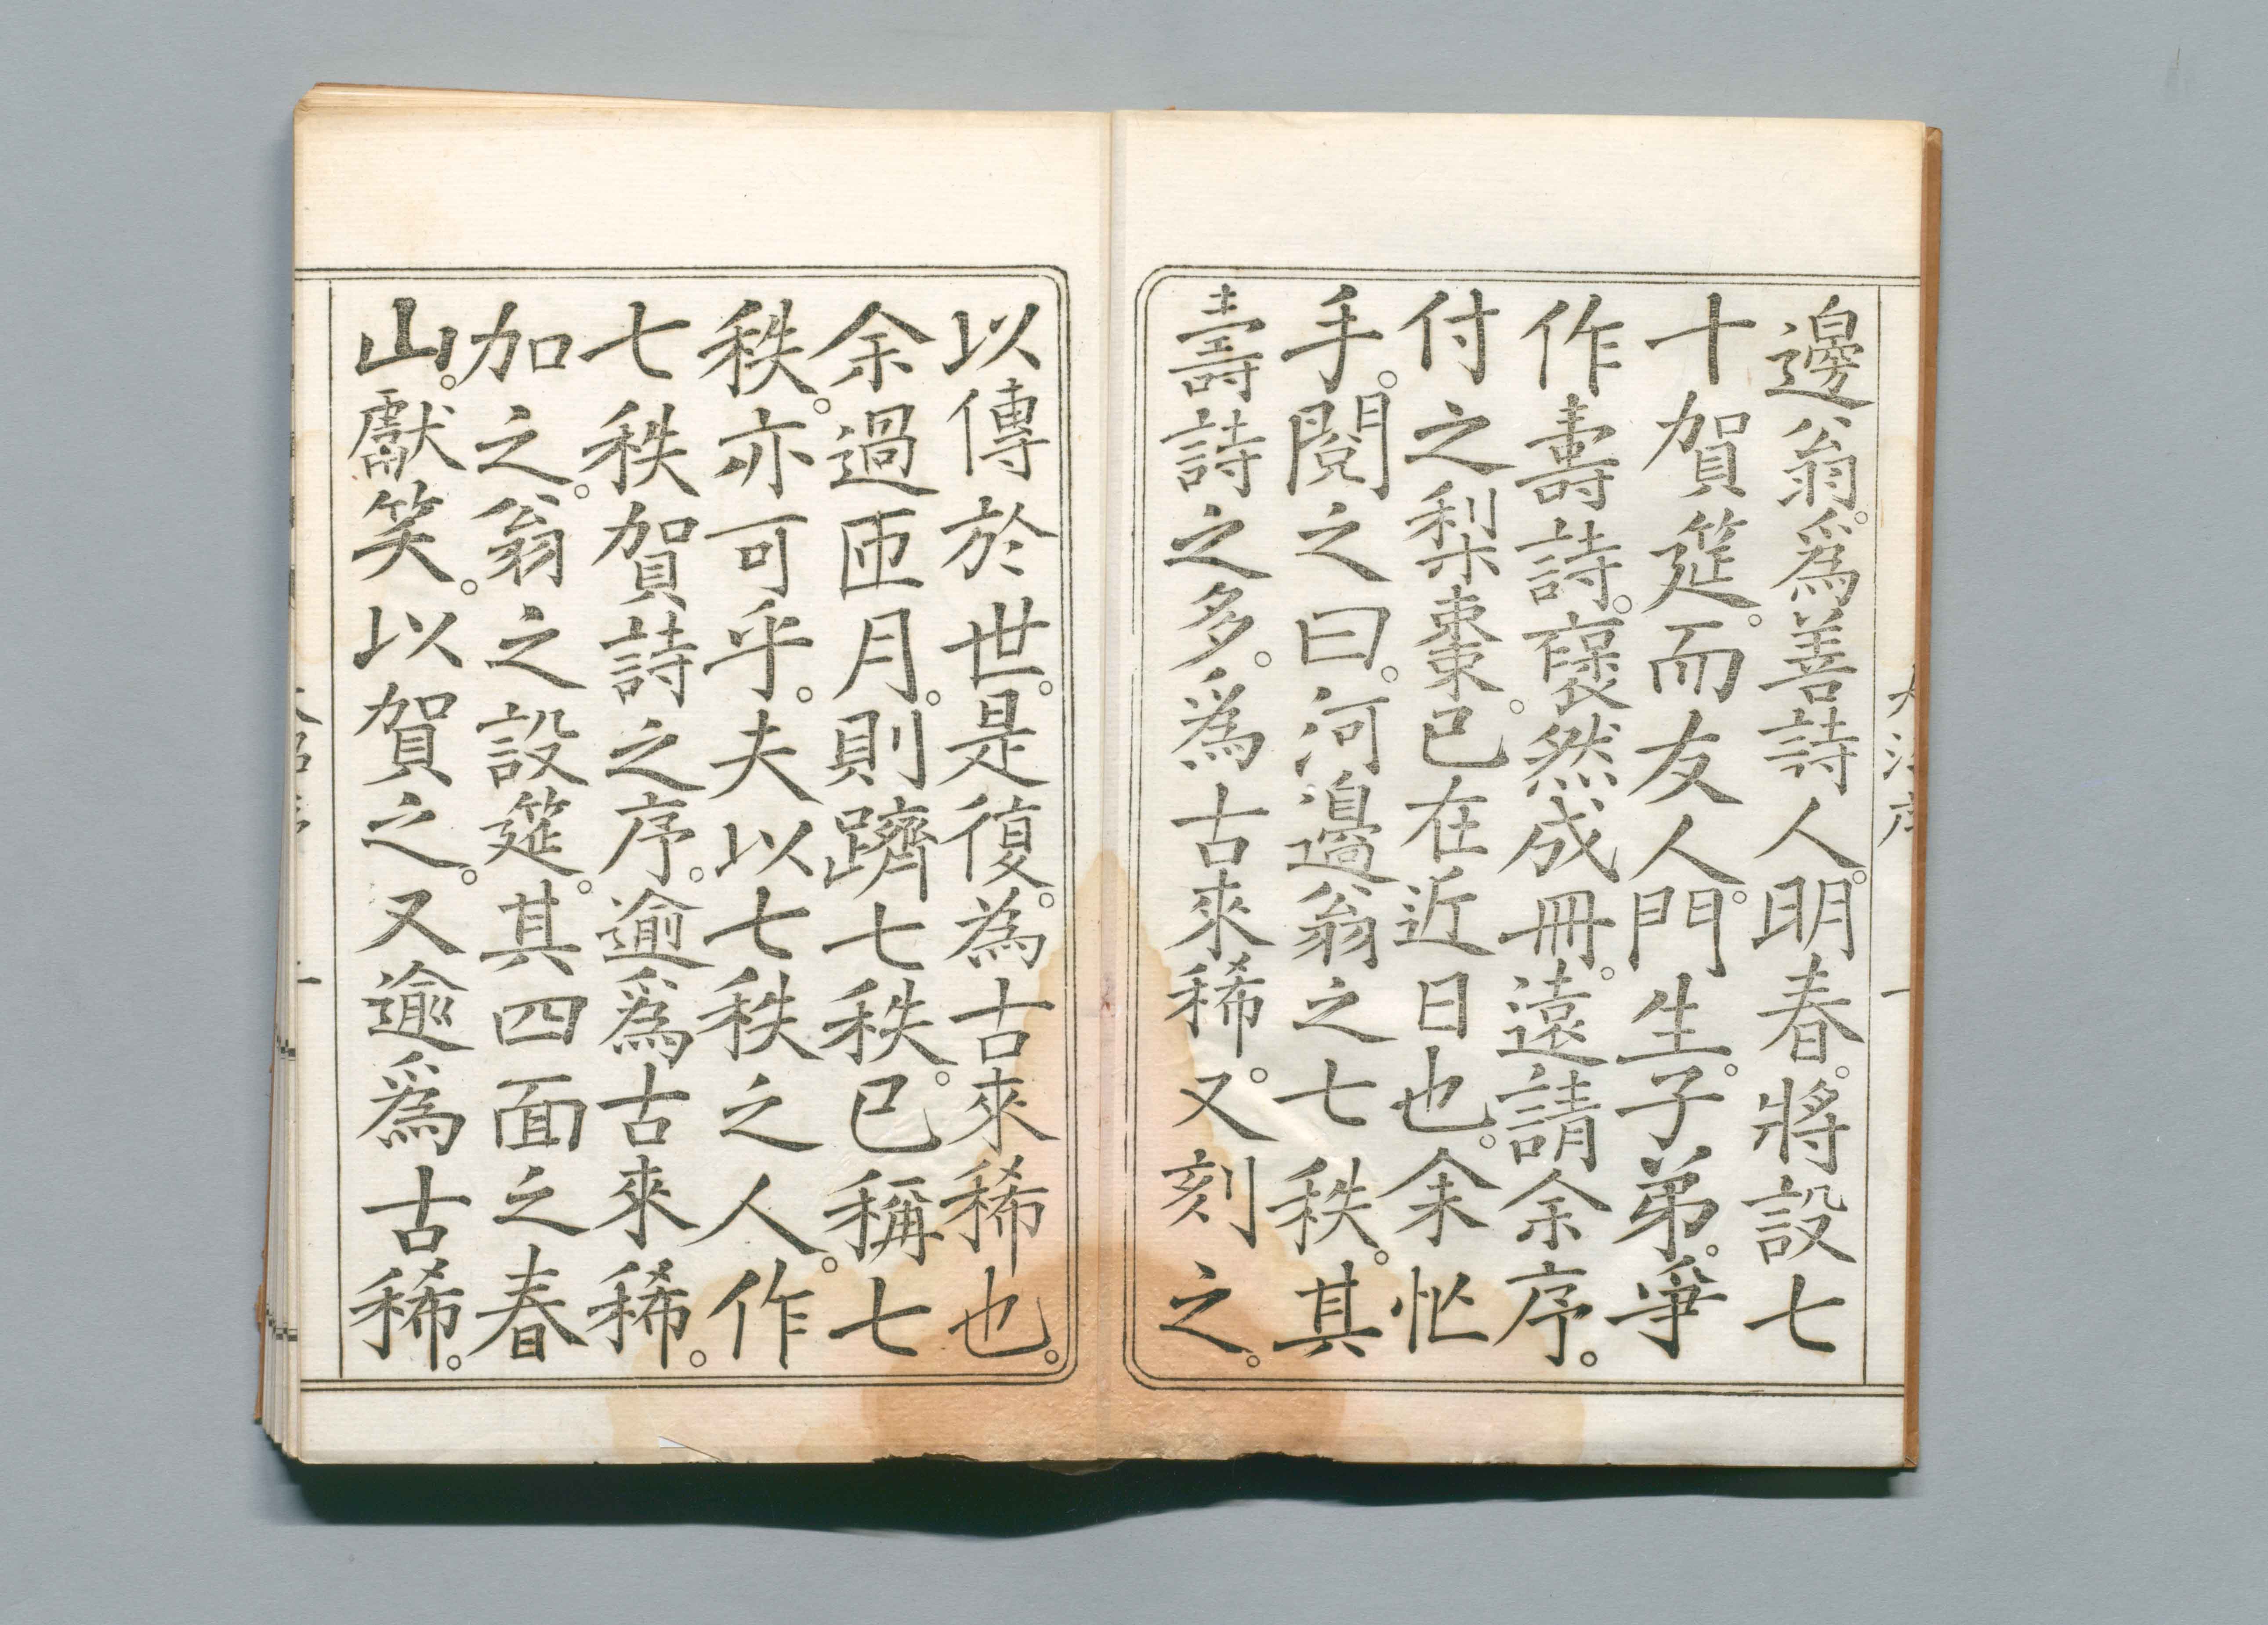 邊翁。爲善詩人。明春。將設七
十賀筵。而友人。門生。子弟。爭
作壽詩。褎然成冊。遠請余序。
付之梨棗。已在近日也。余忙
手。閱之曰。河邊翁之七秩。其
壽詩之多。爲古來稀。又刻之。
以傳於世。是復。為古來稀也。
余過匝月。則躋七秩。已稱七
秩。亦可乎。夫以七秩之人。作
七秩賀詩之序。逾爲古來稀。
加之。翁之設筵。其四面之春
山。獻笑。以賀之。又逾爲古稀。